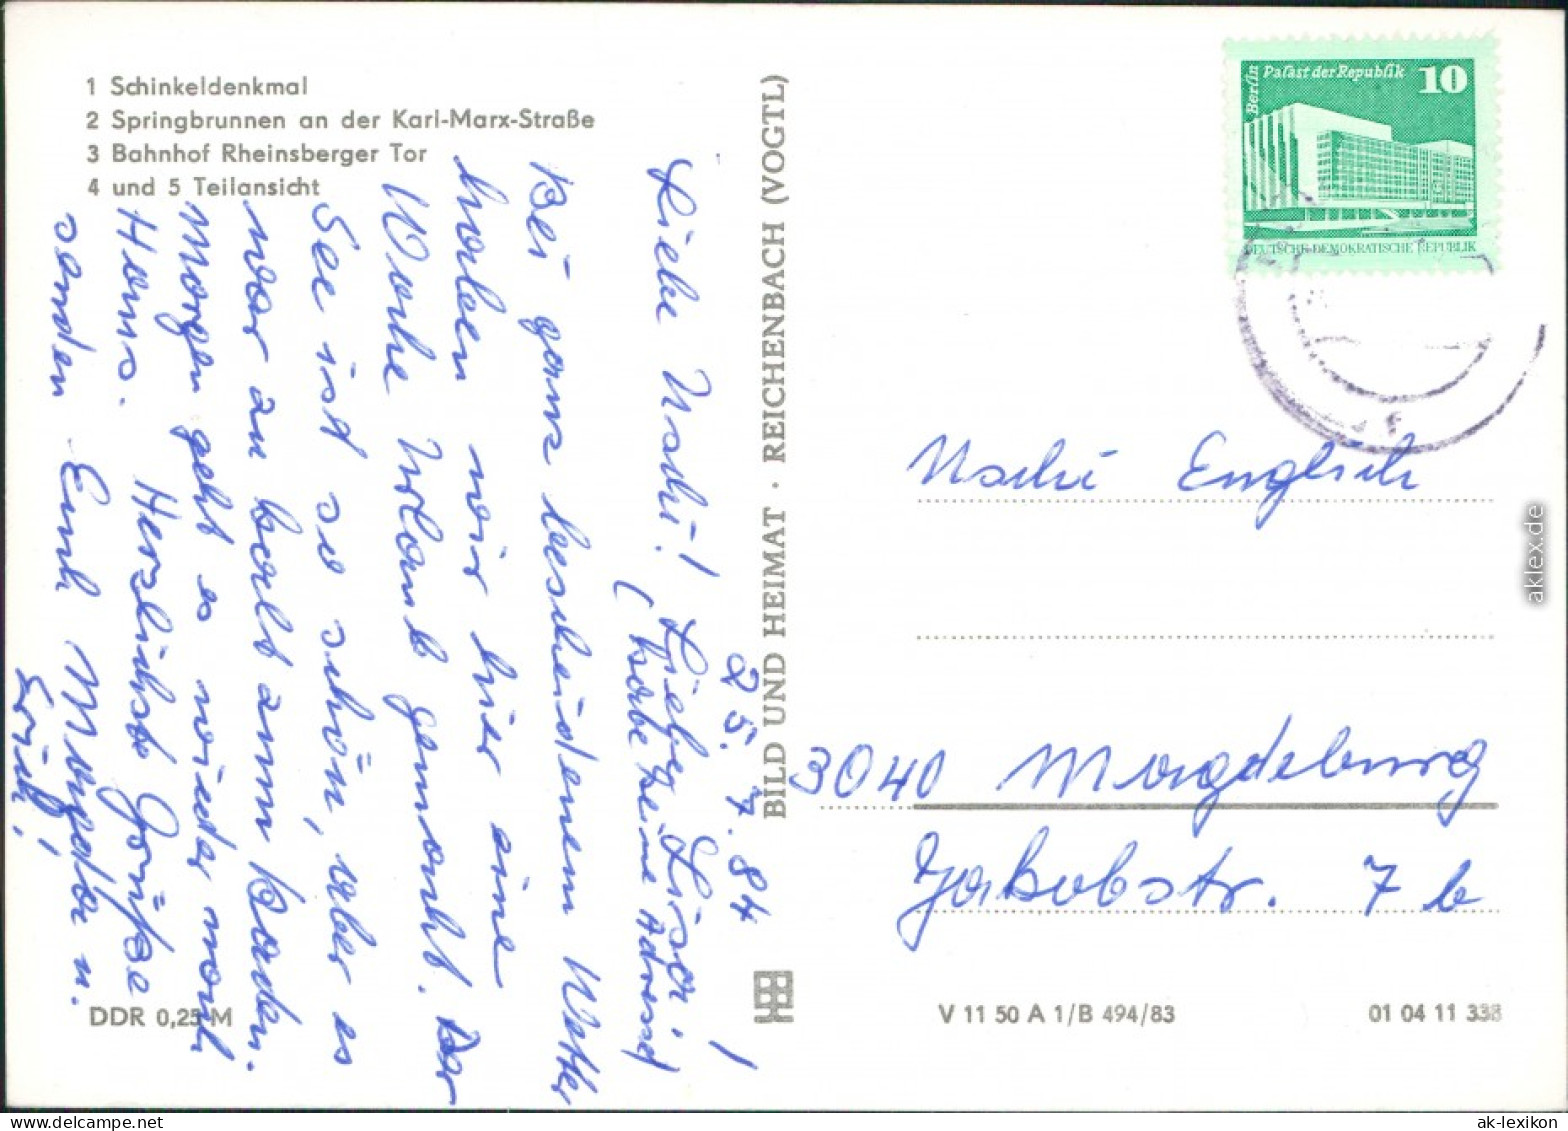 1 Schinkeldenkmal
2 Springbrunnen an der Karl-Marx-Straße
3 Bahnhof Rheinsberger Tor
4 und 5 Teilansicht
25.7.84
Liebe Uschi! Lieber
(habe Deine Adresse)
Bei ganz bescheidenem Wetter
haben wir hier eine
Woche Urlaub gemacht. Der
See ist so schön, aber es
war zu kalt zum baden.
Morgen geht es wieder nach
Haus. Herzlichste Grüße
senden Euch Magda u.
Erich!
BILD UND HEIMAT · REICHENBACH (VOGTL)
Berlin
Palast der Republik
10
DEUTSCHE DEMOKRATISCHE REPUBLIK
Uschi Englich
3040 Magdeburg
Jakobstr. 7b
DDR 0,25 M
V 11 50 A 1/B 494/83
01 04 11 338
aklex.de
ak-lexikon